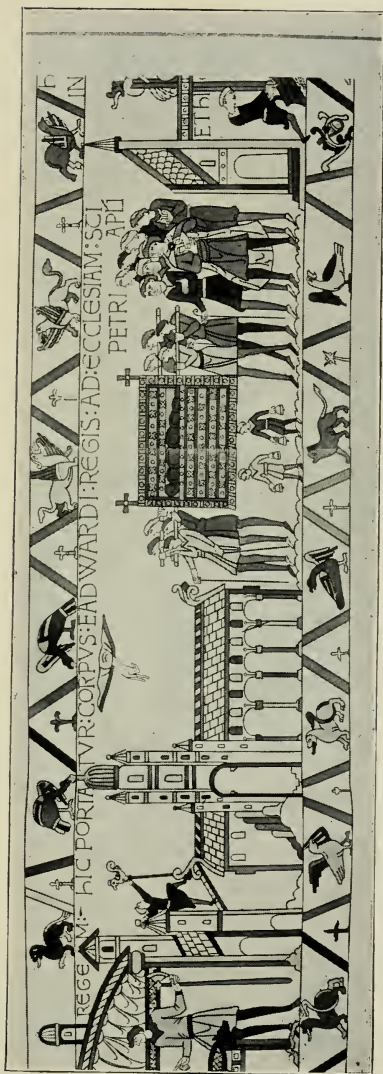 REGEM:- hIC PORTATVR:CORPVS:EADWARDI:REGIS:AD:ECCLESIAM:SCI
PETRI APLI
h
IN
ETh